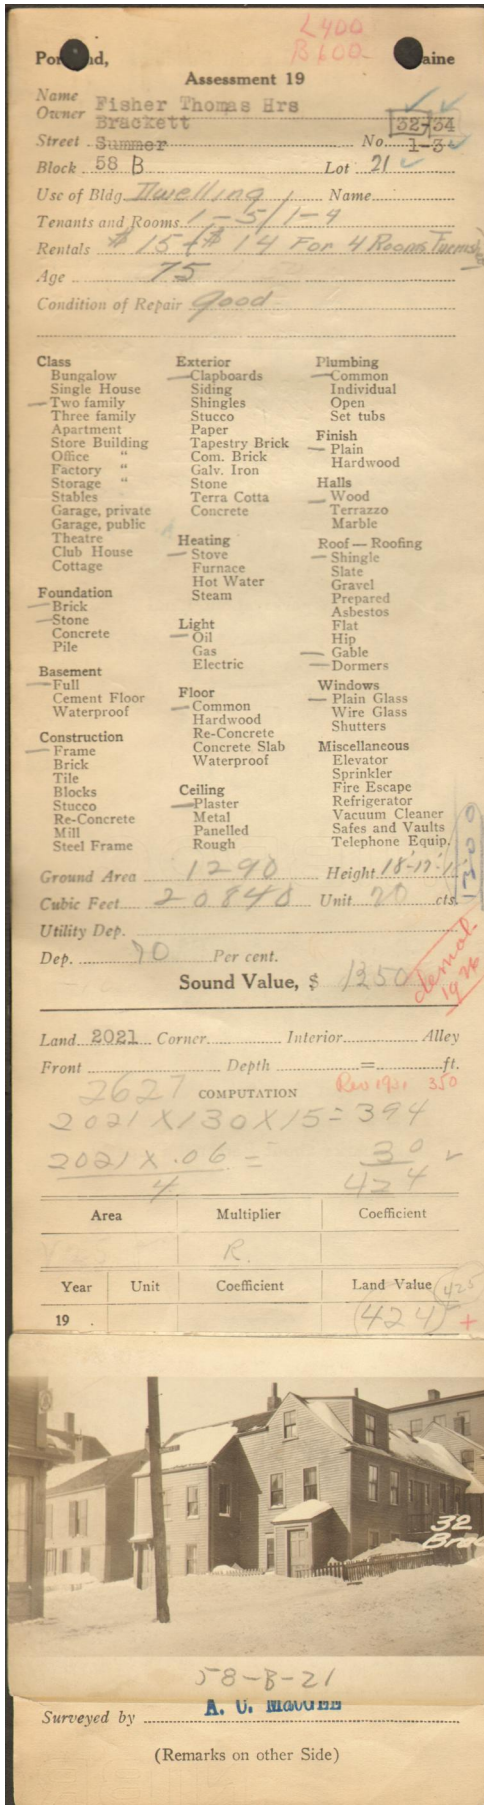 L400
B600
Portland, Maine
Assessment 19
Name
Owner Fisher Thomas Hrs
Brackett 32-34
Street Summer No. 1-3
Block 58 B Lot 21
Use of Bldg. Dwelling Name
Tenants and Rooms 1-5/1-4
Rentals $15 + $14 For 4 Rooms
Age 75
Condition of Repair Good
Class
Bungalow
Single House
Two family
Three family
Apartment
Store Building
Office "
Factory "
Storage "
Stables
Garage, private
Garage, public
Theatre
Club House
Cottage
Foundation
Brick
Stone
Concrete
Pile
Basement
Full
Cement Floor
Waterproof
Construction
Frame
Brick
Tile
Blocks
Stucco
Re-Concrete
Mill
Steel Frame
Exterior
Clapboards
Siding
Shingles
Stucco
Paper
Tapestry Brick
Com. Brick
Galv. Iron
Stone
Terra Cotta
Concrete
Heating
Stove
Furnace
Hot Water
Steam
Light
Oil
Gas
Electric
Floor
Common
Hardwood
Re-Concrete
Concrete Slab
Waterproof
Ceiling
Plaster
Metal
Panelled
Rough
Plumbing
Common
Individual
Open
Set tubs
Finish
Plain
Hardwood
Halls
Wood
Terrazzo
Marble
Roof — Roofing
Shingle
Slate
Gravel
Prepared
Asbestos
Flat
Hip
Gable
Dormers
Windows
Plain Glass
Wire Glass
Shutters
Miscellaneous
Elevator
Sprinkler
Fire Escape
Refrigerator
Vacuum Cleaner
Safes and Vaults
Telephone Equip.
1300
Ground Area 1290 Height
Cubic Feet 20840 Unit 20 cts.
Utility Dep.
Dep. 70 Per cent.
Sound Value, $ 1250
demol.
1926
Land 2021 Corner Interior Alley
Front Depth = ft.
2627 COMPUTATION Rev 1921 350
2021 X 130 X 15 = 394
2021 X .06 = 30
4 424
Area Multiplier Coefficient
R.
Year Unit Coefficient Land Value 425
19 (424) +
32
58-B-21
Surveyed by A. C. MacGEE
(Remarks on other Side)